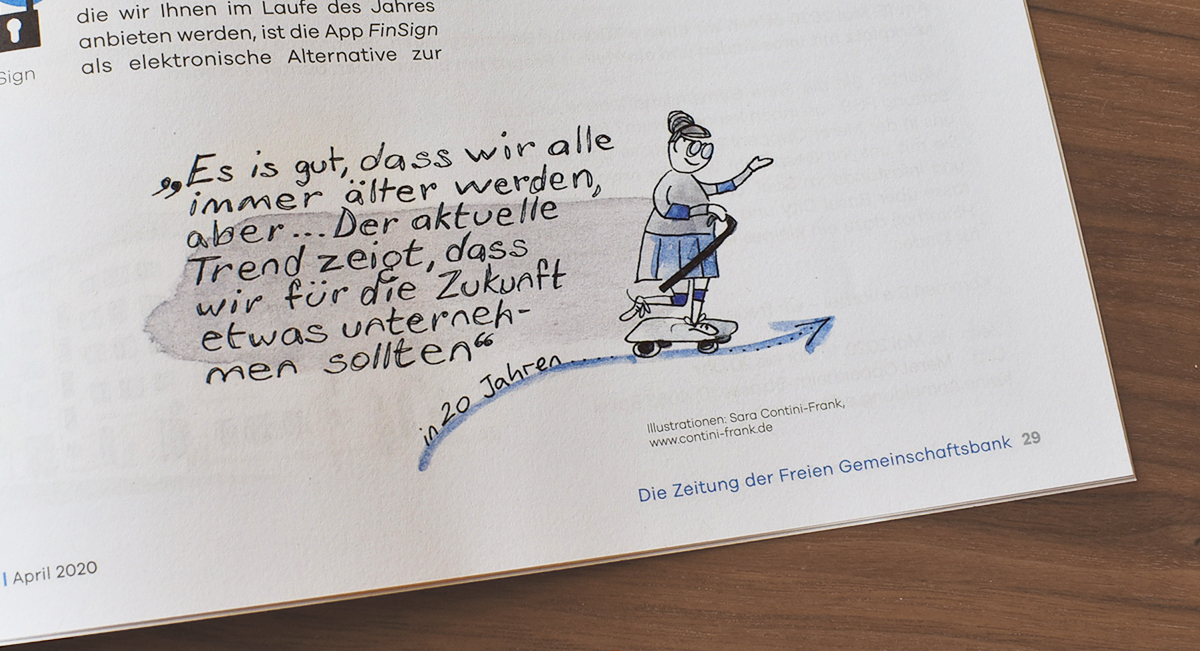 die wir Ihnen im Laufe des Jahres
anbieten werden, ist die App FinSign
als elektronische Alternative zur
Sign
„Es is gut, dass wir alle
immer älter werden,
aber... Der aktuelle
Trend zeigt, dass
wir für die Zukunft
etwas unterneh-
men sollten“
in 20 Jahren
Illustrationen: Sara Contini-Frank,
www.contini-frank.de
Die Zeitung der Freien Gemeinschaftsbank 29
| April 2020